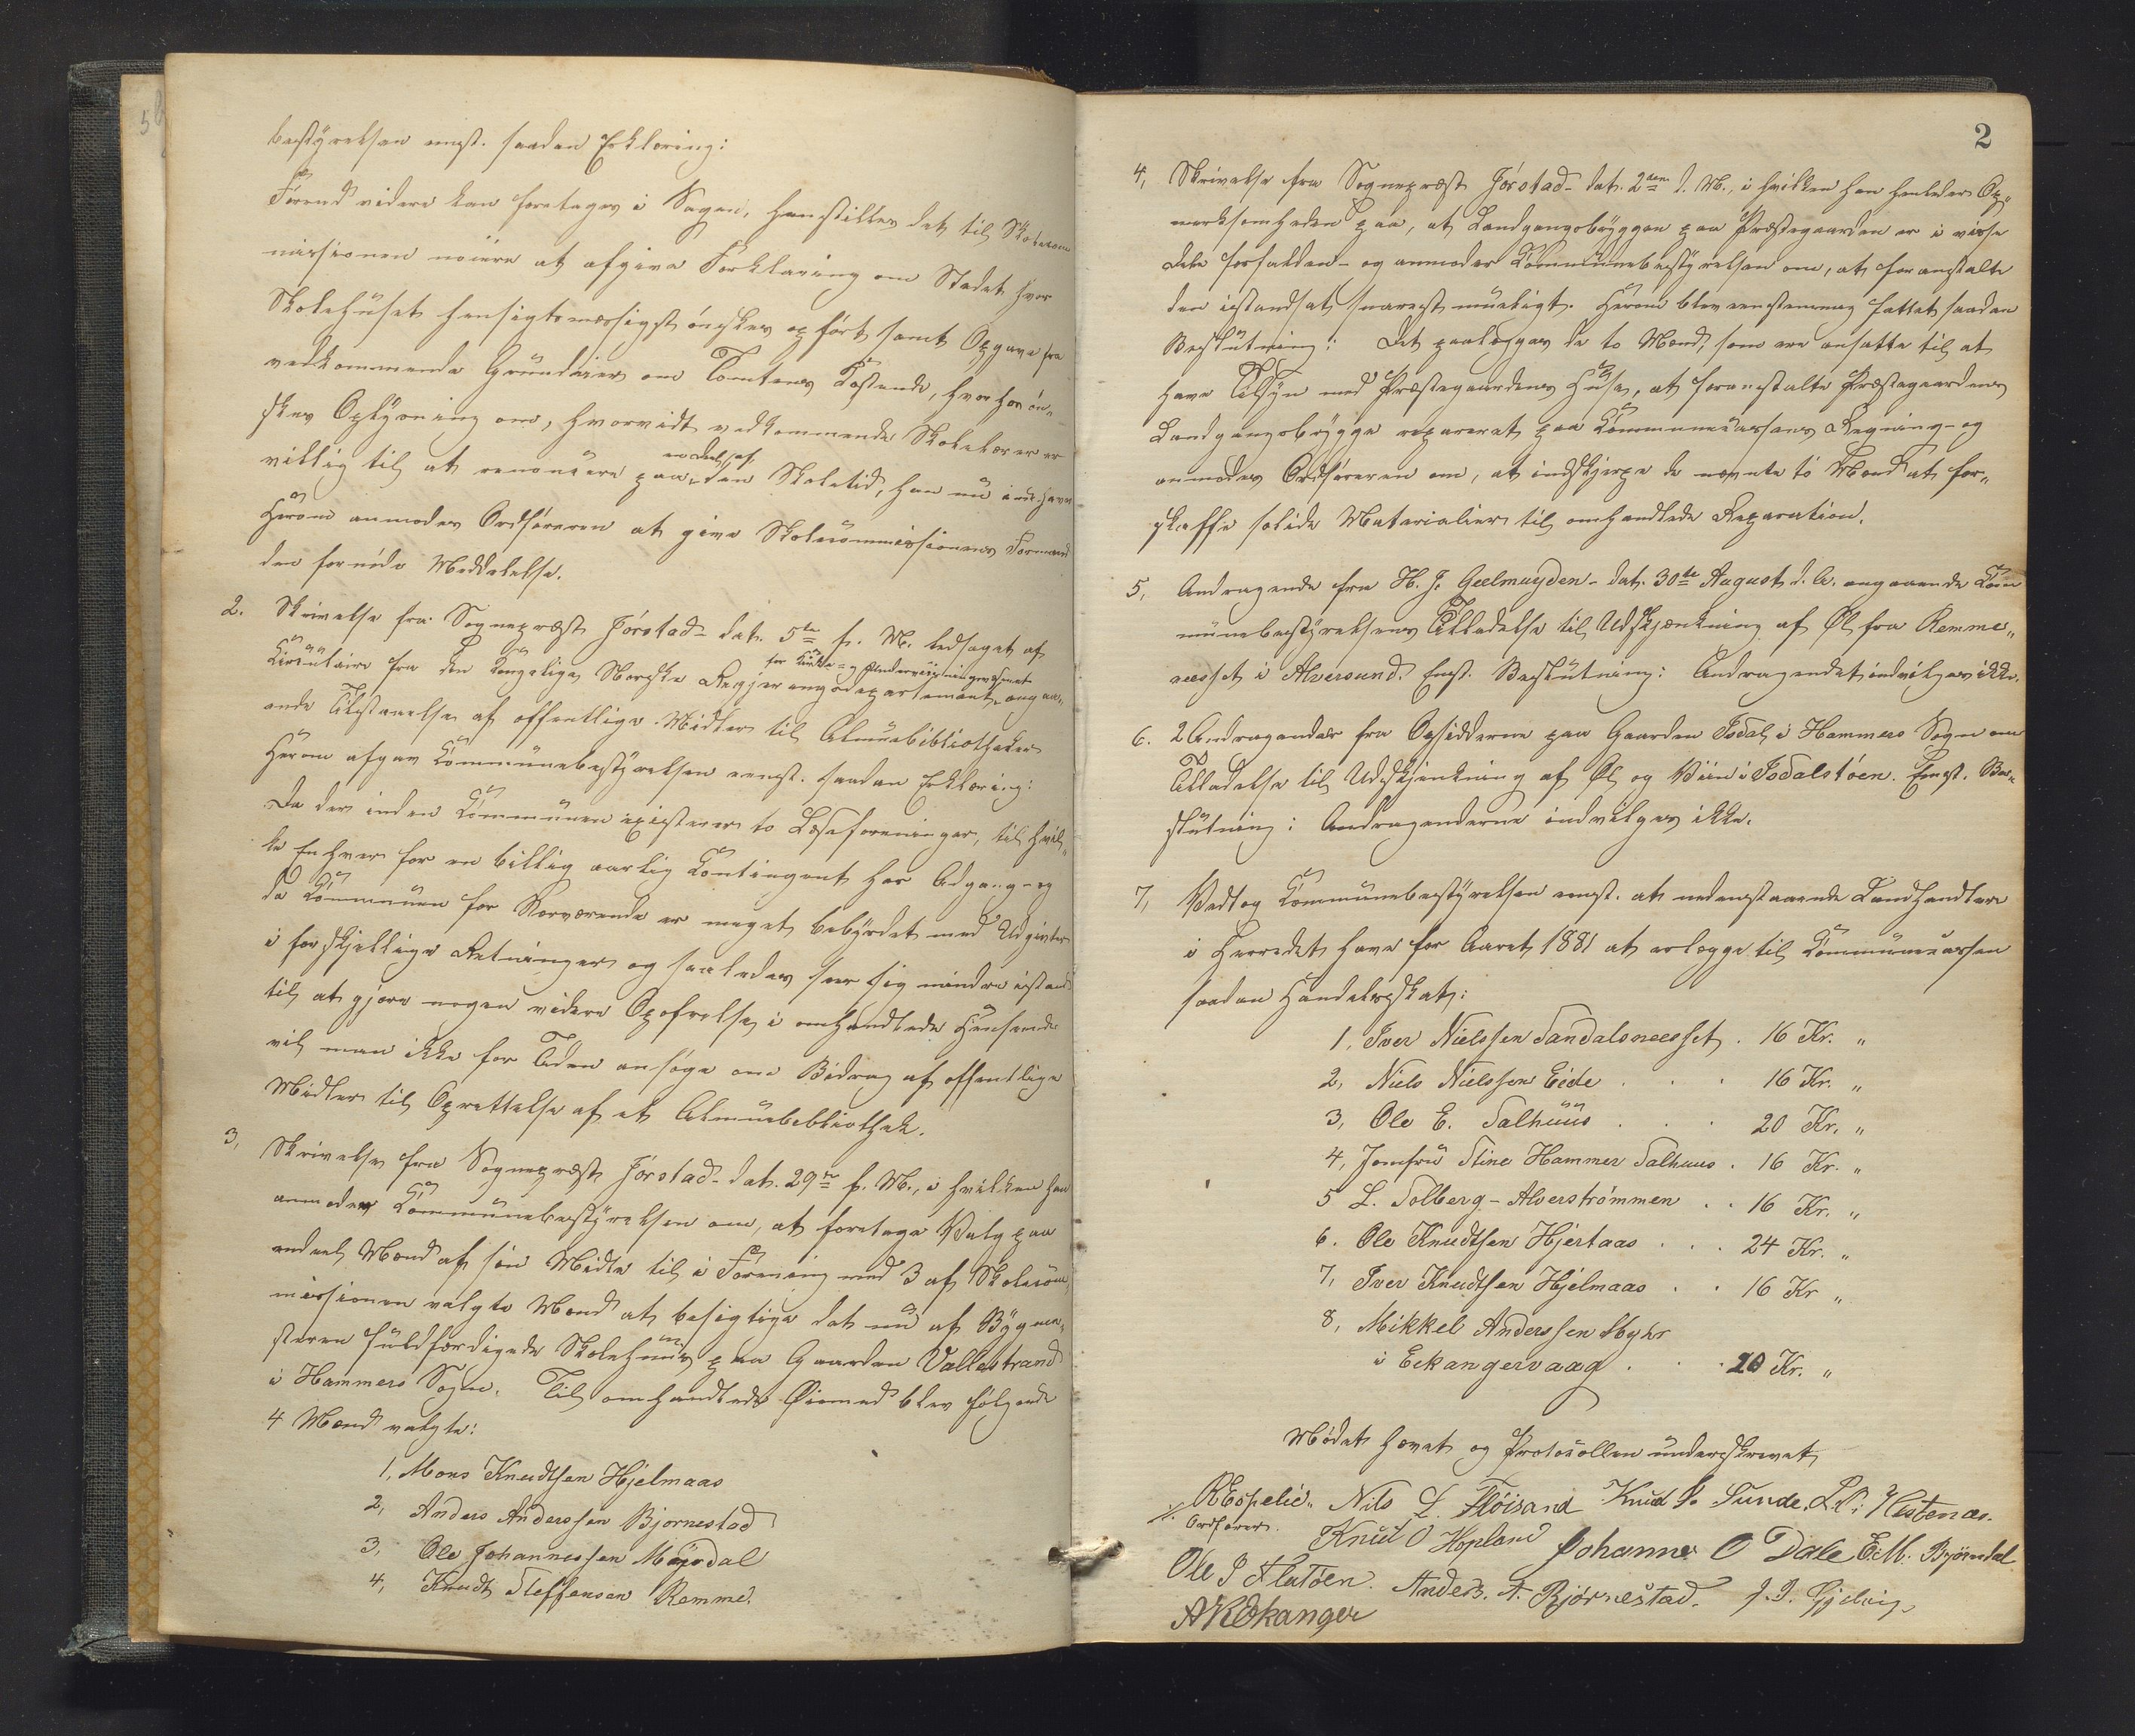 bestyrelsen enst. saadan Erklæring:
Førend videre kan foretages i Sagen, henstilles det til Skolecom
missionen nöiere at afgive Forklaring om Stedet hvor
Skolehuset hensigtsmæssigst ønskes opført samt Opgave fra
vedkommende Grundeier om Tomtens Kostende, hvorhos øn-
skes Oplysning om, hvorvidt vedkommende Skolelærer er
villig til at renoncere paa en Deel af den Skoletid, han nu indehaver
Herom anmodes Ordføreren at give Skolecommissionens Formand
den fornödne Meddelelse.
2. Skrivelse fra Sognepræst Jörstad dat. 5te f. M. ledsaget af
Circulaire fra den Kongelige Norske Regjeringsdepartement for Kirke- og Underviisningsvæsenet angaa-
ende Tilstaaelse af offentlige Midler til Almuebibliotheker
Herom afgav Communebestyrelsen eenst. saadan Erklæring:
Da der inden Communen existerer to Læseforeninger, til hvil-
ke Enhver for en billig aarlig Contingent har Adgang - og
da Communen for Nærværende er meget bebyrdet med Udgivter
i forskjellige Retninger og saaledes seer sig mindre istand
til at gjøre nogen videre Opofrelse i omhandlede Henseende
vil man ikke for Tiden ansöge om Bidrag af offentlige
Midler til Oprettelse af et Almuebibliothek.
3, Skrivelse fra Sognepræst Jörstad - dat. 29de f. M., i hvilken han
anmoder Communebestyrelsen om, at foretage Valg paa
endeel Mænd af sin Midte til i Forening med 3 af Skolecom-
missionen valgte Mænd at besigtige det nu af Bygme-
steren fuldfærdigede Skolehuus paa Gaarden Vallestrand
i Hammers Sogn. Til omhandlede Øiemed blev følgende
4 Mænd valgte:
1, Mons Knudtsen Hjelmaas
2, Anders Anderssen Bjornestad
3, Ole Johannessen Mogrdal
4, Knudt Steffensen Remme.
2
4, Skrivelse fra Sognepræst Jörstad - dat. 2den d. M., i hvilken han henleder Op-
merksomheden paa, at Landgangsbryggen paa Præstegaarden er i visse
Dele forfalden - og anmoder Communebestyrelsen om, at foranstalte
den istandsat snarest mueligt. Herom blev eenstemmig fattet saadan
Beslutning: Det paalægges de to Mænd, som ere ansatte til at
have Tilsyn med Præstegaardens Huse, at foranstalte Præstegaardens
Landgangsbrygge repareret paa Communecassens Regning - og
anmodes Ordføreren om, at indskjerpe de nævnte to Mænd at for-
skaffe solide Materialier til omhandlede Reparation.
5, Andragende fra H. J. Geelmuyden - dat. 30te August d. A. angaaende Com
munebestyrelsens Tilladelse til Udskjænkning af Øl fra Remme-
neesset i Alversund. Enst. Beslutning: Andragendet indvilges ikke.
6. 2 Andragender fra Opsidderne paa Gaarden Isdal i Hammers Sogn om
Tilladelse til Udskjænkning af Øl og Viin i Isdalstöen. Eenst. Be-
slutning: Andragenderne indvilges ikke.
7, Vedtog Communebestyrelsen eenst. at nedenstaaende Landhandlere
i Herredet have for Aaret 1881 at erlægge til Communecassen
saadan Handelsskat:
1, Iver Nielssen Sandalsneesset . 16 Kr. "
2, Niels Nielssen Eide . . . 16 Kr. "
3, Ole E. Salhuus . . . 20 Kr. "
4, Jomfru Stine Hammer Salhuus . 16 Kr. "
5 L. Solberg - Alverströmmen . . 16 Kr. "
6. Ole Knudtsen Hjertaas . . . 24 Kr. "
7, Iver Knudtsen Hjelmaas . . 16 Kr "
8, Mikkel Anderssen Myhr
i Eckangervaag . . . 20 Kr. "
Mödet hævet og Protocollen underskrevet
R Espelid Nils L. Flöisand Knud J. Sunde. L. L. Hestenæs.
Ordförer. Knud O Hopland Johannes O Dale E. M. Bjørndal
Ole J Flatöen. Anders. A. Bjørnestad. J. J. Gjelvig
A K Ekanger